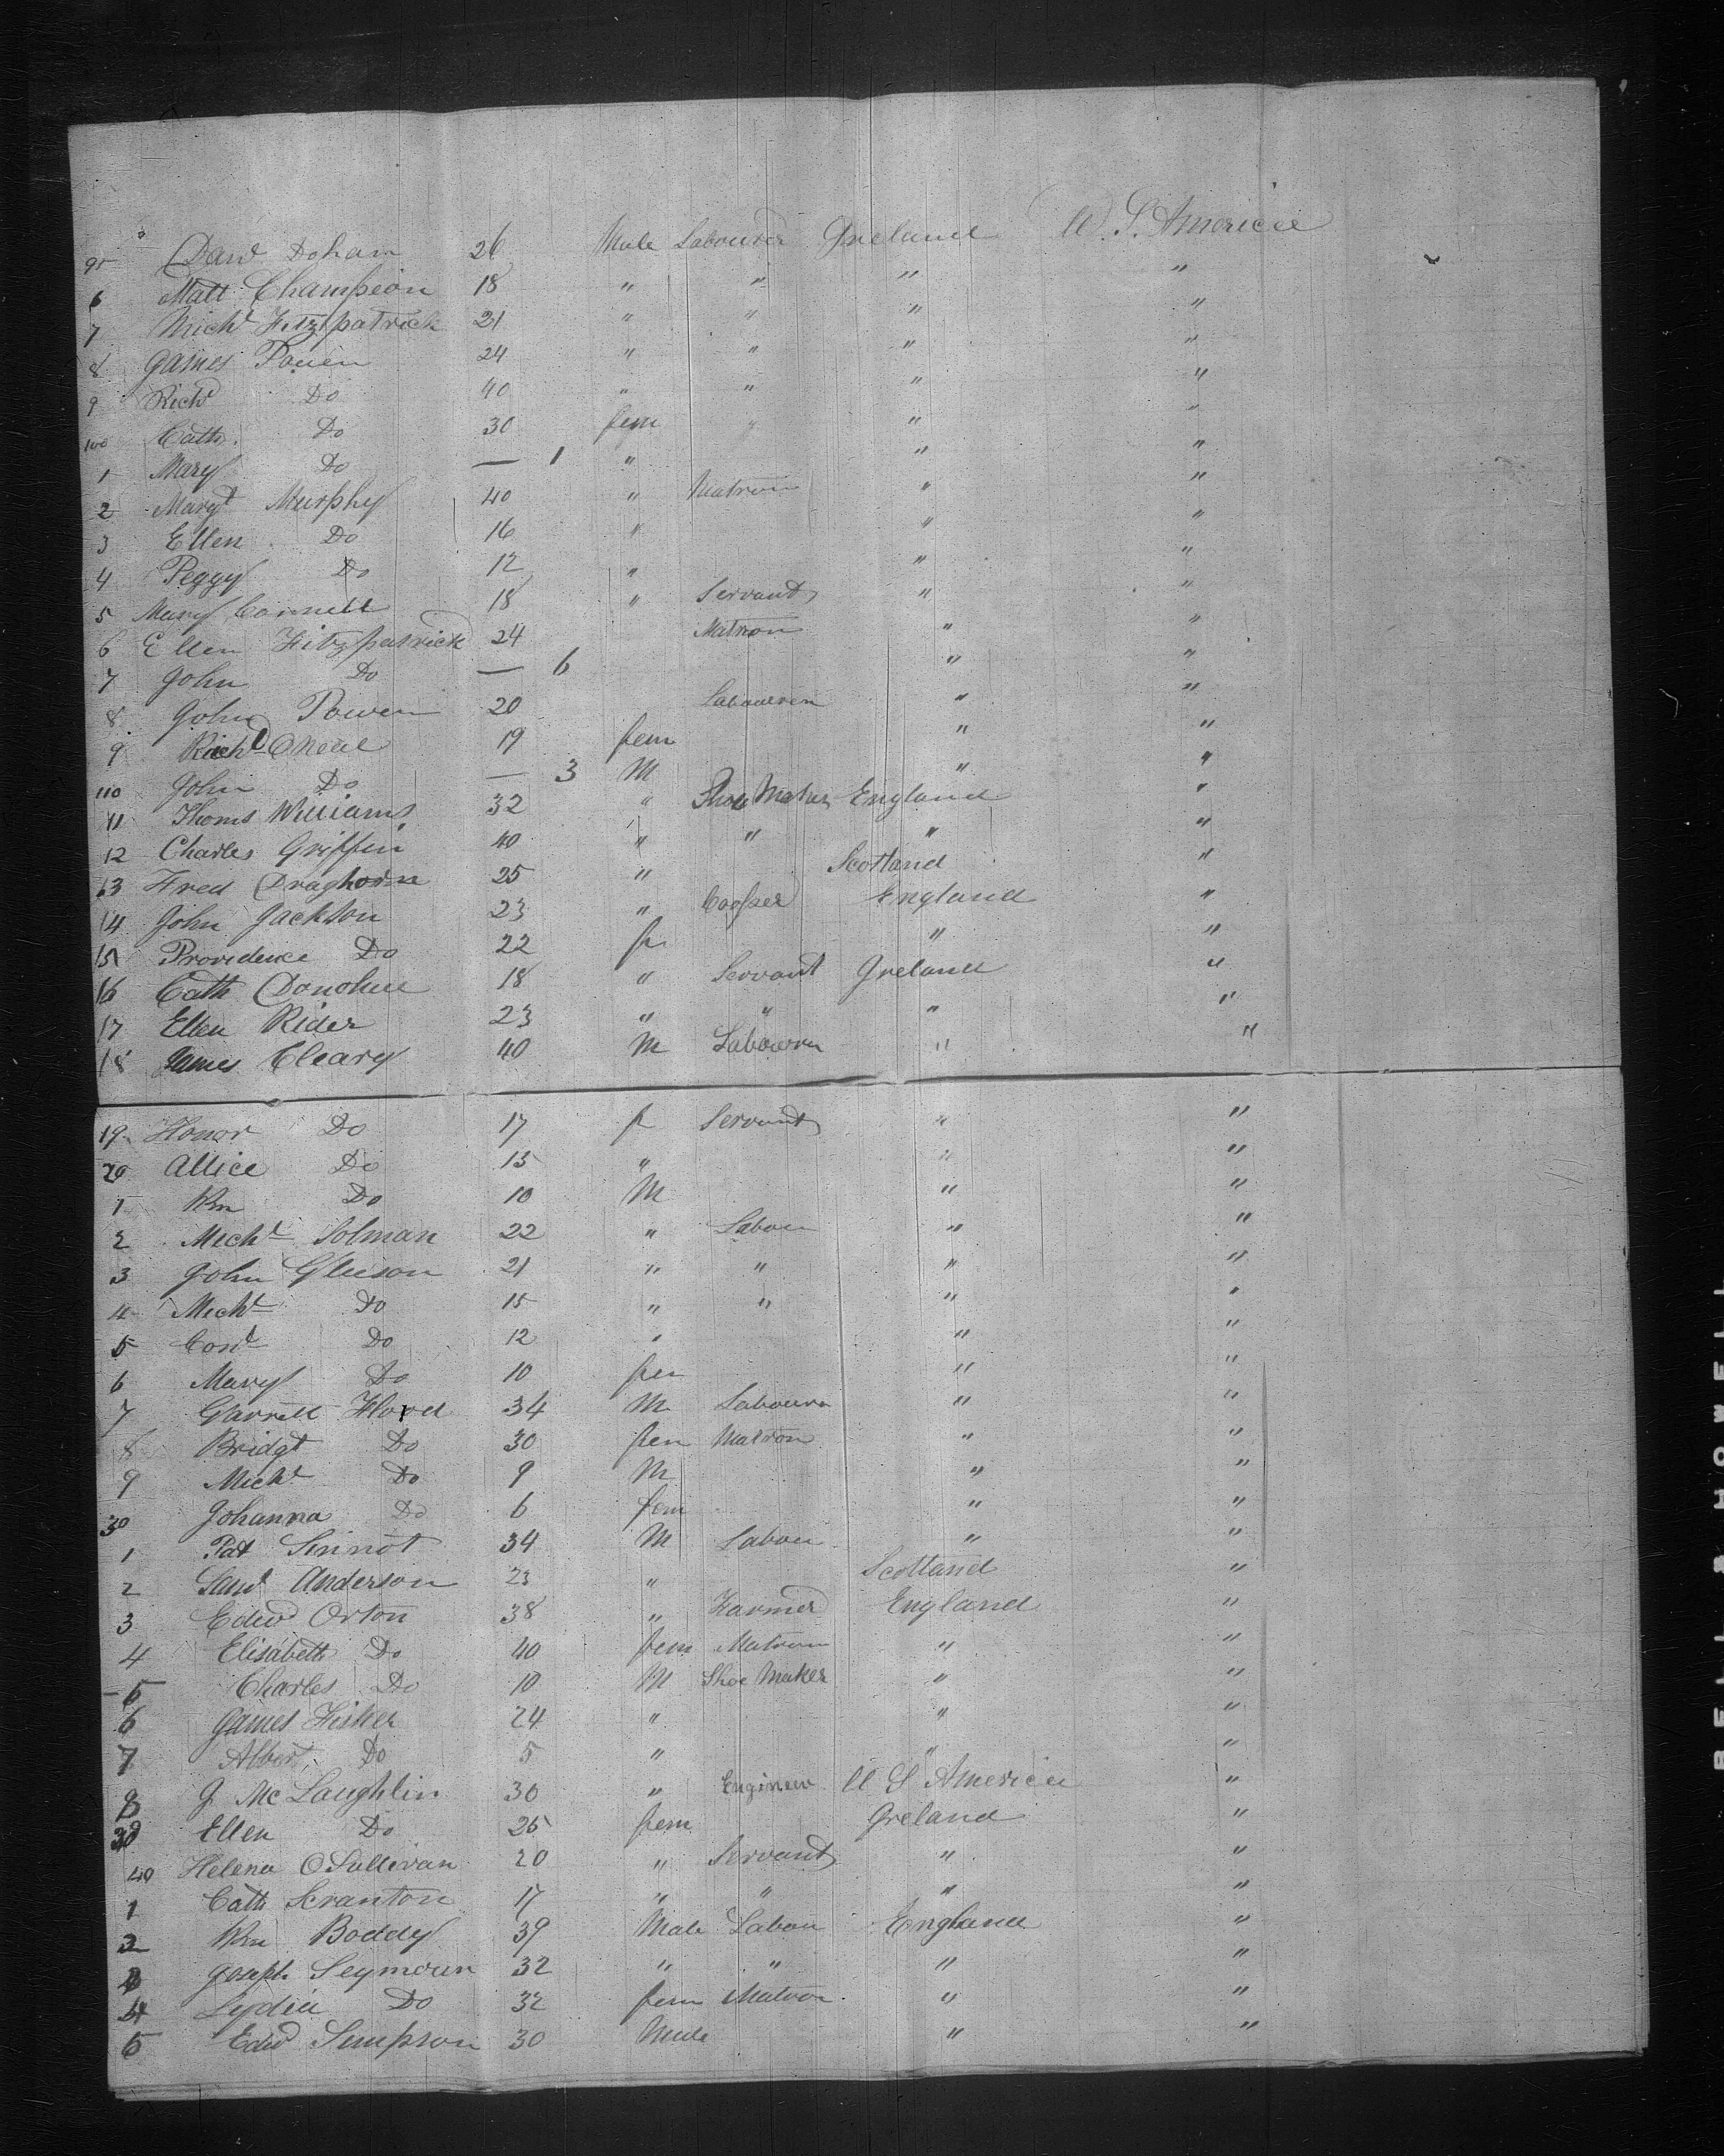 95 David Dohan 26 Male Labourer Ireland U. S. America
6 Matt Champion 18 " " " "
7 Michl Fitzpatrick 21 " " " "
8 James Power 24 " " " "
9 Richd Do 40 " " " "
100 Cath. Do 30 fem " " "
1 Mary Do — 1 " " "
2 Margt Murphy 40 " Matron " "
3 Ellen Do 16 " " "
4 Peggy Do 12 " " "
5 Mary Connell 18 " Servant " "
6 Ellen Fitzpatrick 24 Matron " "
7 John Do — 6 " "
8 John Power 20 Labourer " "
9 Richd ONeal 19 fem " "
110 John Do — 3 M " "
11 Thoms Williams 32 " Shoe Maker England "
12 Charles Griffin 40 " " " "
13 Fred Draghorn 25 " Scotland "
14 John Jackson 23 " Cooper England "
15 Providence Do 22 f " "
16 Cath Donohue 18 " Servant Ireland "
17 Ellen Rider 23 " " " "
18 James Cleary 40 M Labourer " "
19 Honor Do 17 f Servant " "
20 Allice Do 13 " " "
1 Wm Do 10 M " "
2 Michl Solman 22 " Labour " "
3 John Gleeson 21 " " " "
4 Michl Do 15 " " " "
5 Cond Do 12 " " "
6 Mary Do 10 fem " "
7 Garrett Flood 34 M Labourer " "
8 Bridgt Do 30 fem Matron " "
9 Michl Do 9 M " "
30 Johanna Do 6 fem " "
1 Pat Sinnot 34 M Labour " "
2 Anderson 23 " Scotland "
3 Edwd Orton 38 " Farmer England "
4 Elisabeth Do 40 fem Matron " "
5 Charles Do 10 M Shoe Maker " "
6 James Fisher 24 " " "
7 Albert Do 5 " " "
8 J. McLaughlin 30 " Engineer U S America "
39 Ellen Do 25 fem Ireland "
40 Helena OSullivan 20 " Servant " "
1 Cath Scranton 17 " " " "
2 Wm Boddy 39 Male Labour England "
3 Joseph Seymour 32 " " " "
4 Lydia Do 32 fem Matron " "
5 Edwd Simpson 30 Male " "
BELL & HOWELL